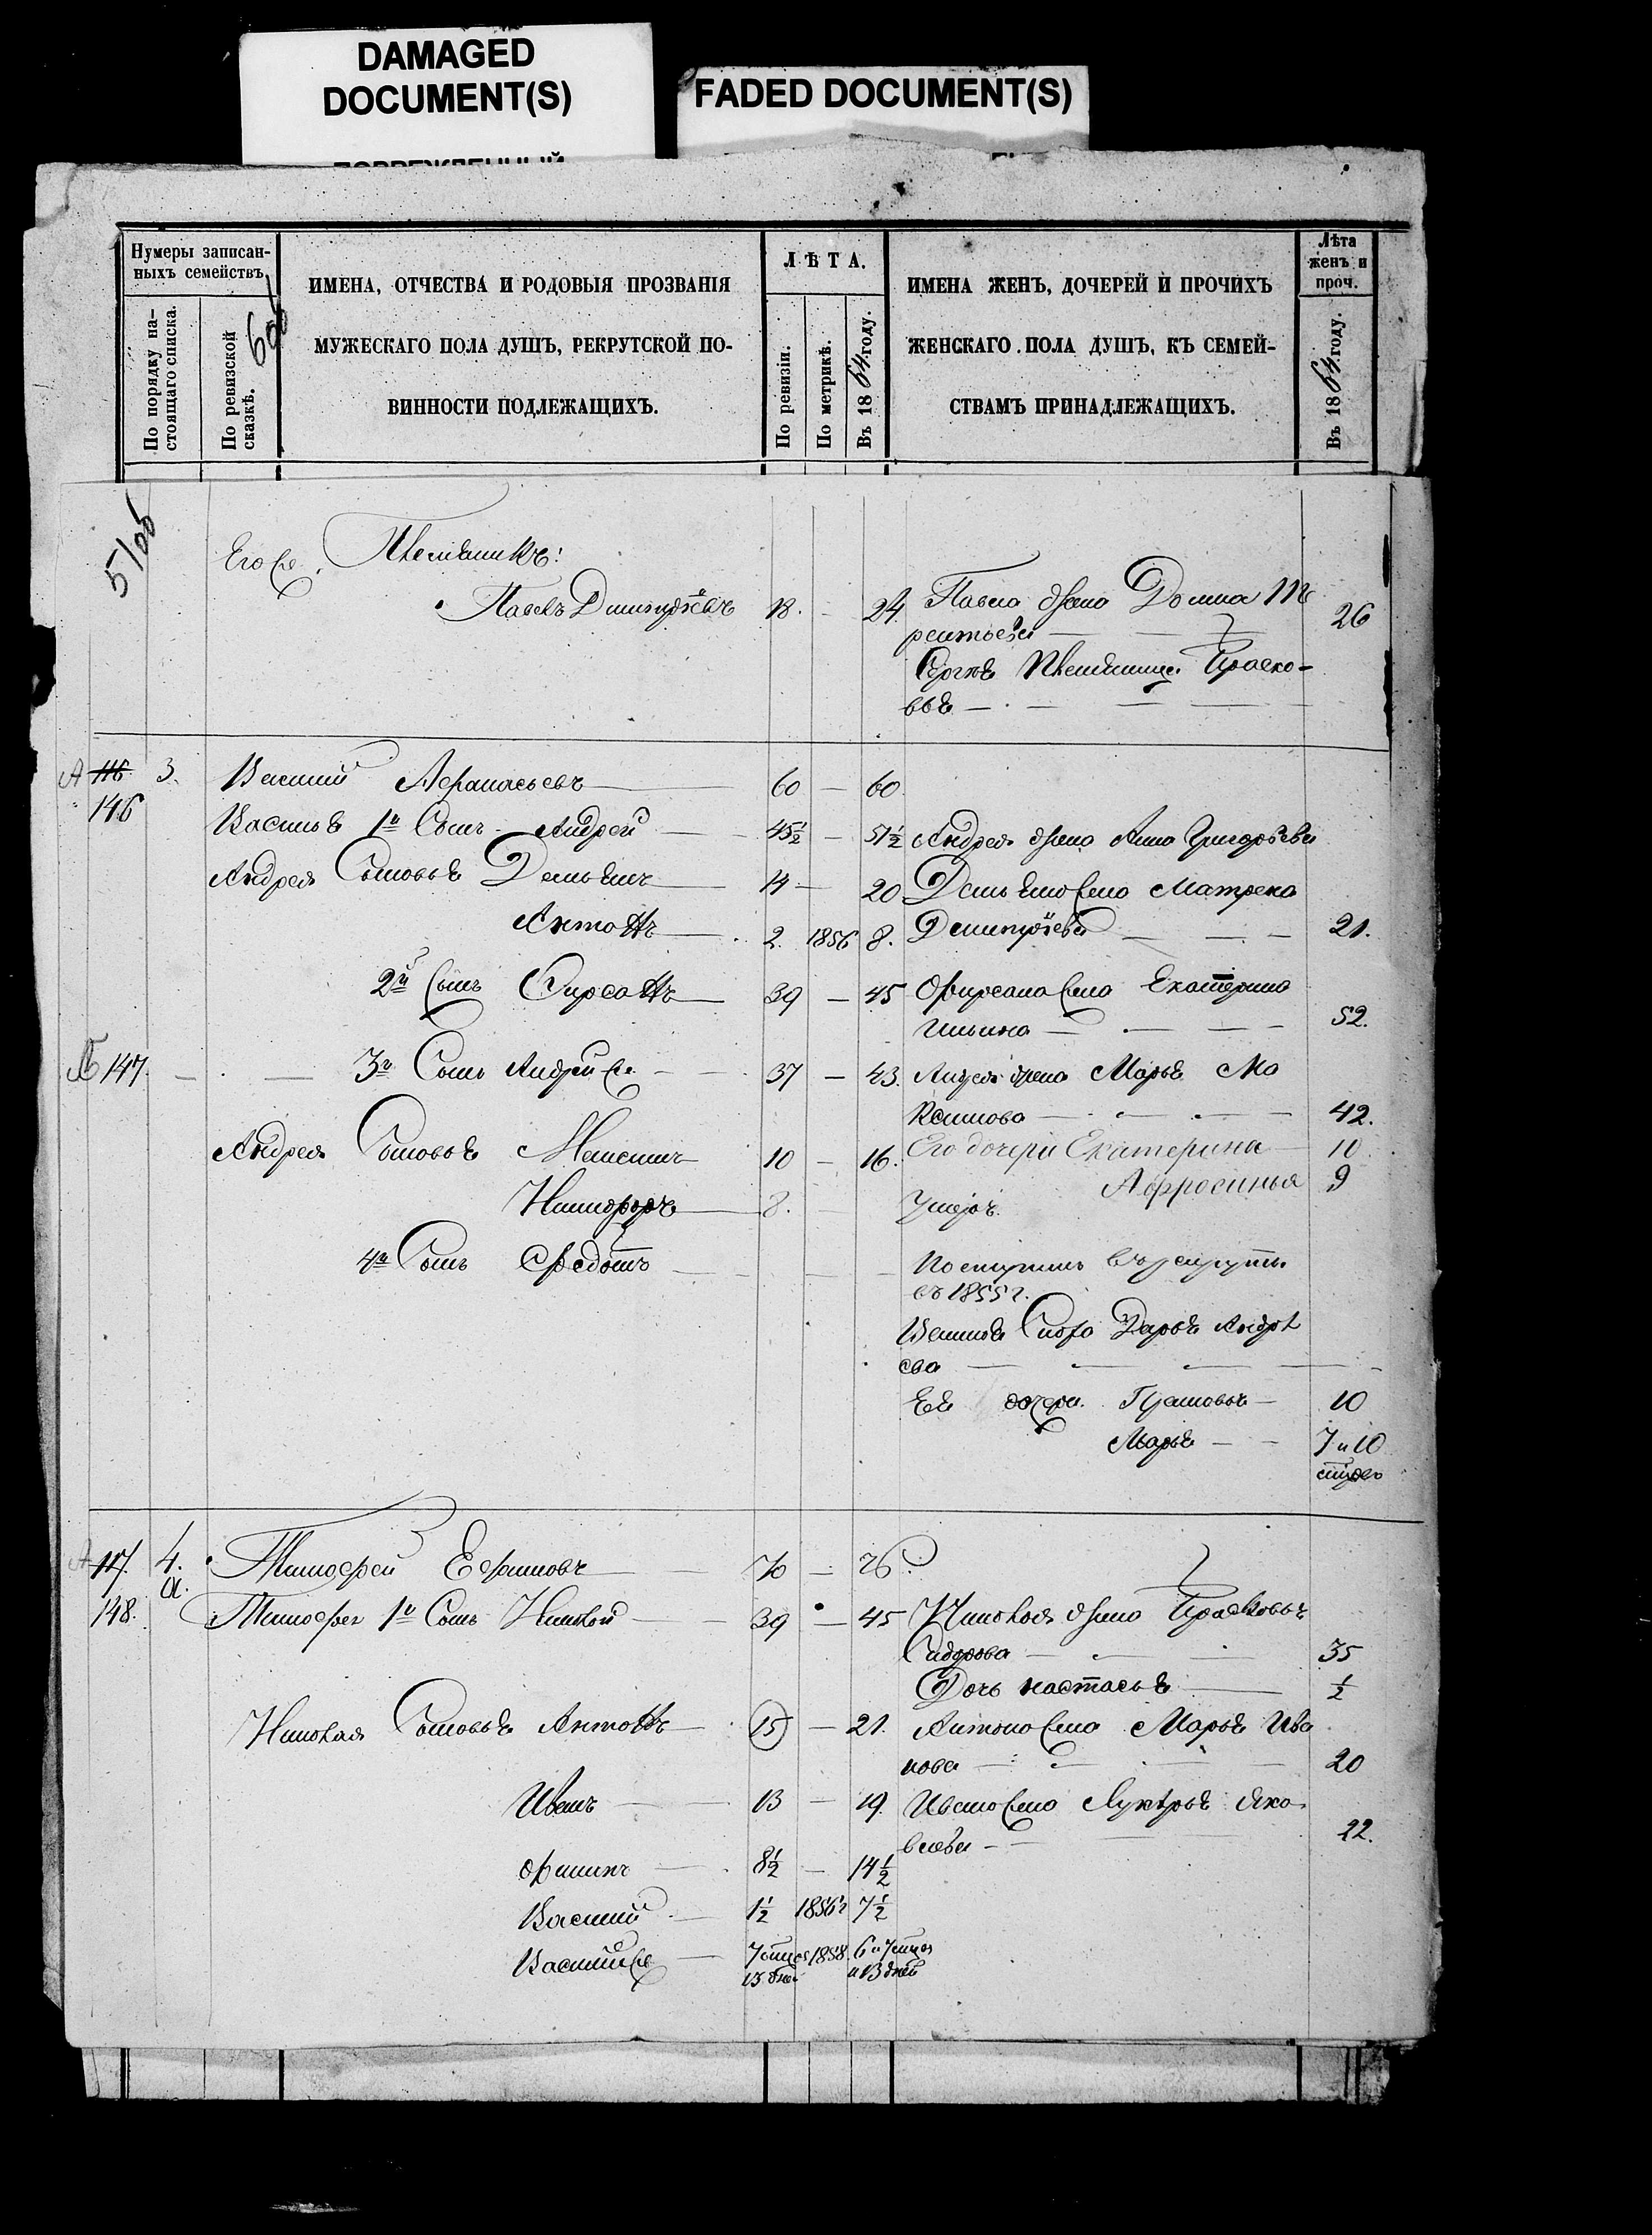 DAMAGED
DOCUMENT(S)
FADED DOCUMENT(S)
Нумеры записан-
ныхъ семействъ
По порядку на-
стоящаго списка.
По ревизской
сказкѣ.
ИМЕНА, ОТЧЕСТВА И РОДОВЫЯ ПРОЗВАНІЯ
МУЖЕСКАГО ПОЛА ДУШЪ, РЕКРУТСКОЙ ПО-
ВИННОСТИ ПОДЛЕЖАЩИХЪ.
ЛѢТА.
По ревизіи.
По метрикѣ.
Въ 1864 году.
ИМЕНА ЖЕНЪ, ДОЧЕРЕЙ И ПРОЧИХЪ
ЖЕНСКАГО ПОЛА ДУШЪ, КЪ СЕМЕЙ-
СТВАМЪ ПРИНАДЛЕЖАЩИХЪ.
Лѣта
женъ и
проч.
Въ 1864 году.
Племянникъ:
Павелъ Дмитріевъ 18. — 24. Павла жена Домна Те
рентьева 26
Сергѣя племянница Праско-
вья
А 116 3. Василий Афанасьевъ 60 — 60
146
Василья 1й Сынъ Андрей 45½ — 51½ Андрея жена Анна Григорьева
Андрея Сыновья Демьянъ 14 — 20 Демьяна жена Матрена
Антонъ 2. 1856 8. Дмитріева 21.
2й Сынъ Фирсанъ 39 — 45 Фирсана жена Екатерина
Ильина 52.
Б 147 3й Сынъ Андрей 37 — 43. Андрея жена Марья Ма
ксимова 42.
Андрея Сыновья Максимъ 10 — 16. Его дочери Екатерина 10
Афросинья 9
Никифоръ 8. — Умеръ.
4й Сынъ Федотъ Поступилъ въ рекруты
въ 1855 г.
Дарья Андрѣ
ева
Ея дочери 10
Марья 7 и 10
А 117. 4. Тимофей Ефимовъ 70 — 76
148. Тимофея 1й Сынъ Николай 39 — 45 Николая жена Прасковья
Сидорова 35
Дочь настасья ½
Николая Сыновья Антонъ 15 — 21. Антона жена Марья Ива
нова 20
Иванъ 13 — 19. Ивана жена Лукерья Яко
влева 22.
Филипъ 8½ — 14½
Василий 1½ 1856г 7½
Василий 1858. 6 и 7
13 дней и 13 дней